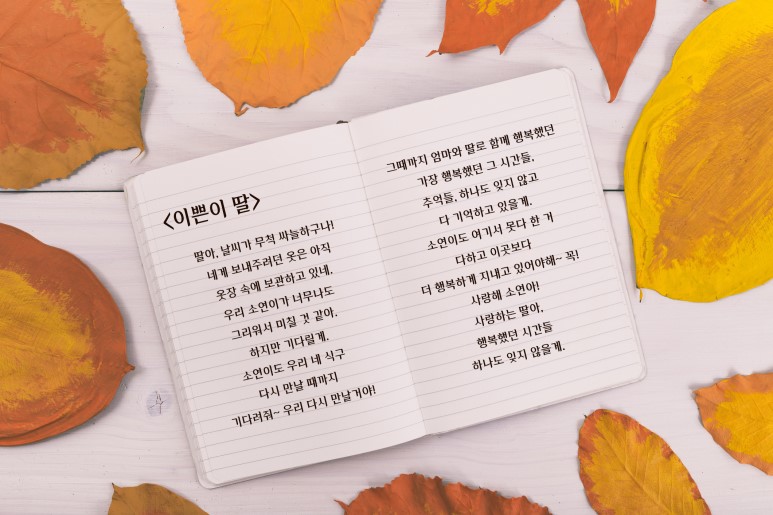 <이쁜이 딸>
딸아, 날씨가 무척 싸늘하구나!
네게 보내주려던 옷은 아직
옷장 속에 보관하고 있네,
우리 소연이가 너무나도
그리워서 미칠 것 같아.
하지만 기다릴게.
소연이도 우리 네 식구
다시 만날 때까지
기다려줘~ 우리 다시 만날거야!
그때까지 엄마와 딸로 함께 행복했던
가장 행복했던 그 시간들,
추억들, 하나도 잊지 않고
다 기억하고 있을게.
소연이도 여기서 못다 한 거
다하고 이곳보다
더 행복하게 지내고 있어야해~ 꼭!
사랑해 소연아!
사랑하는 딸아,
행복했던 시간들
하나도 잊지 않을게.